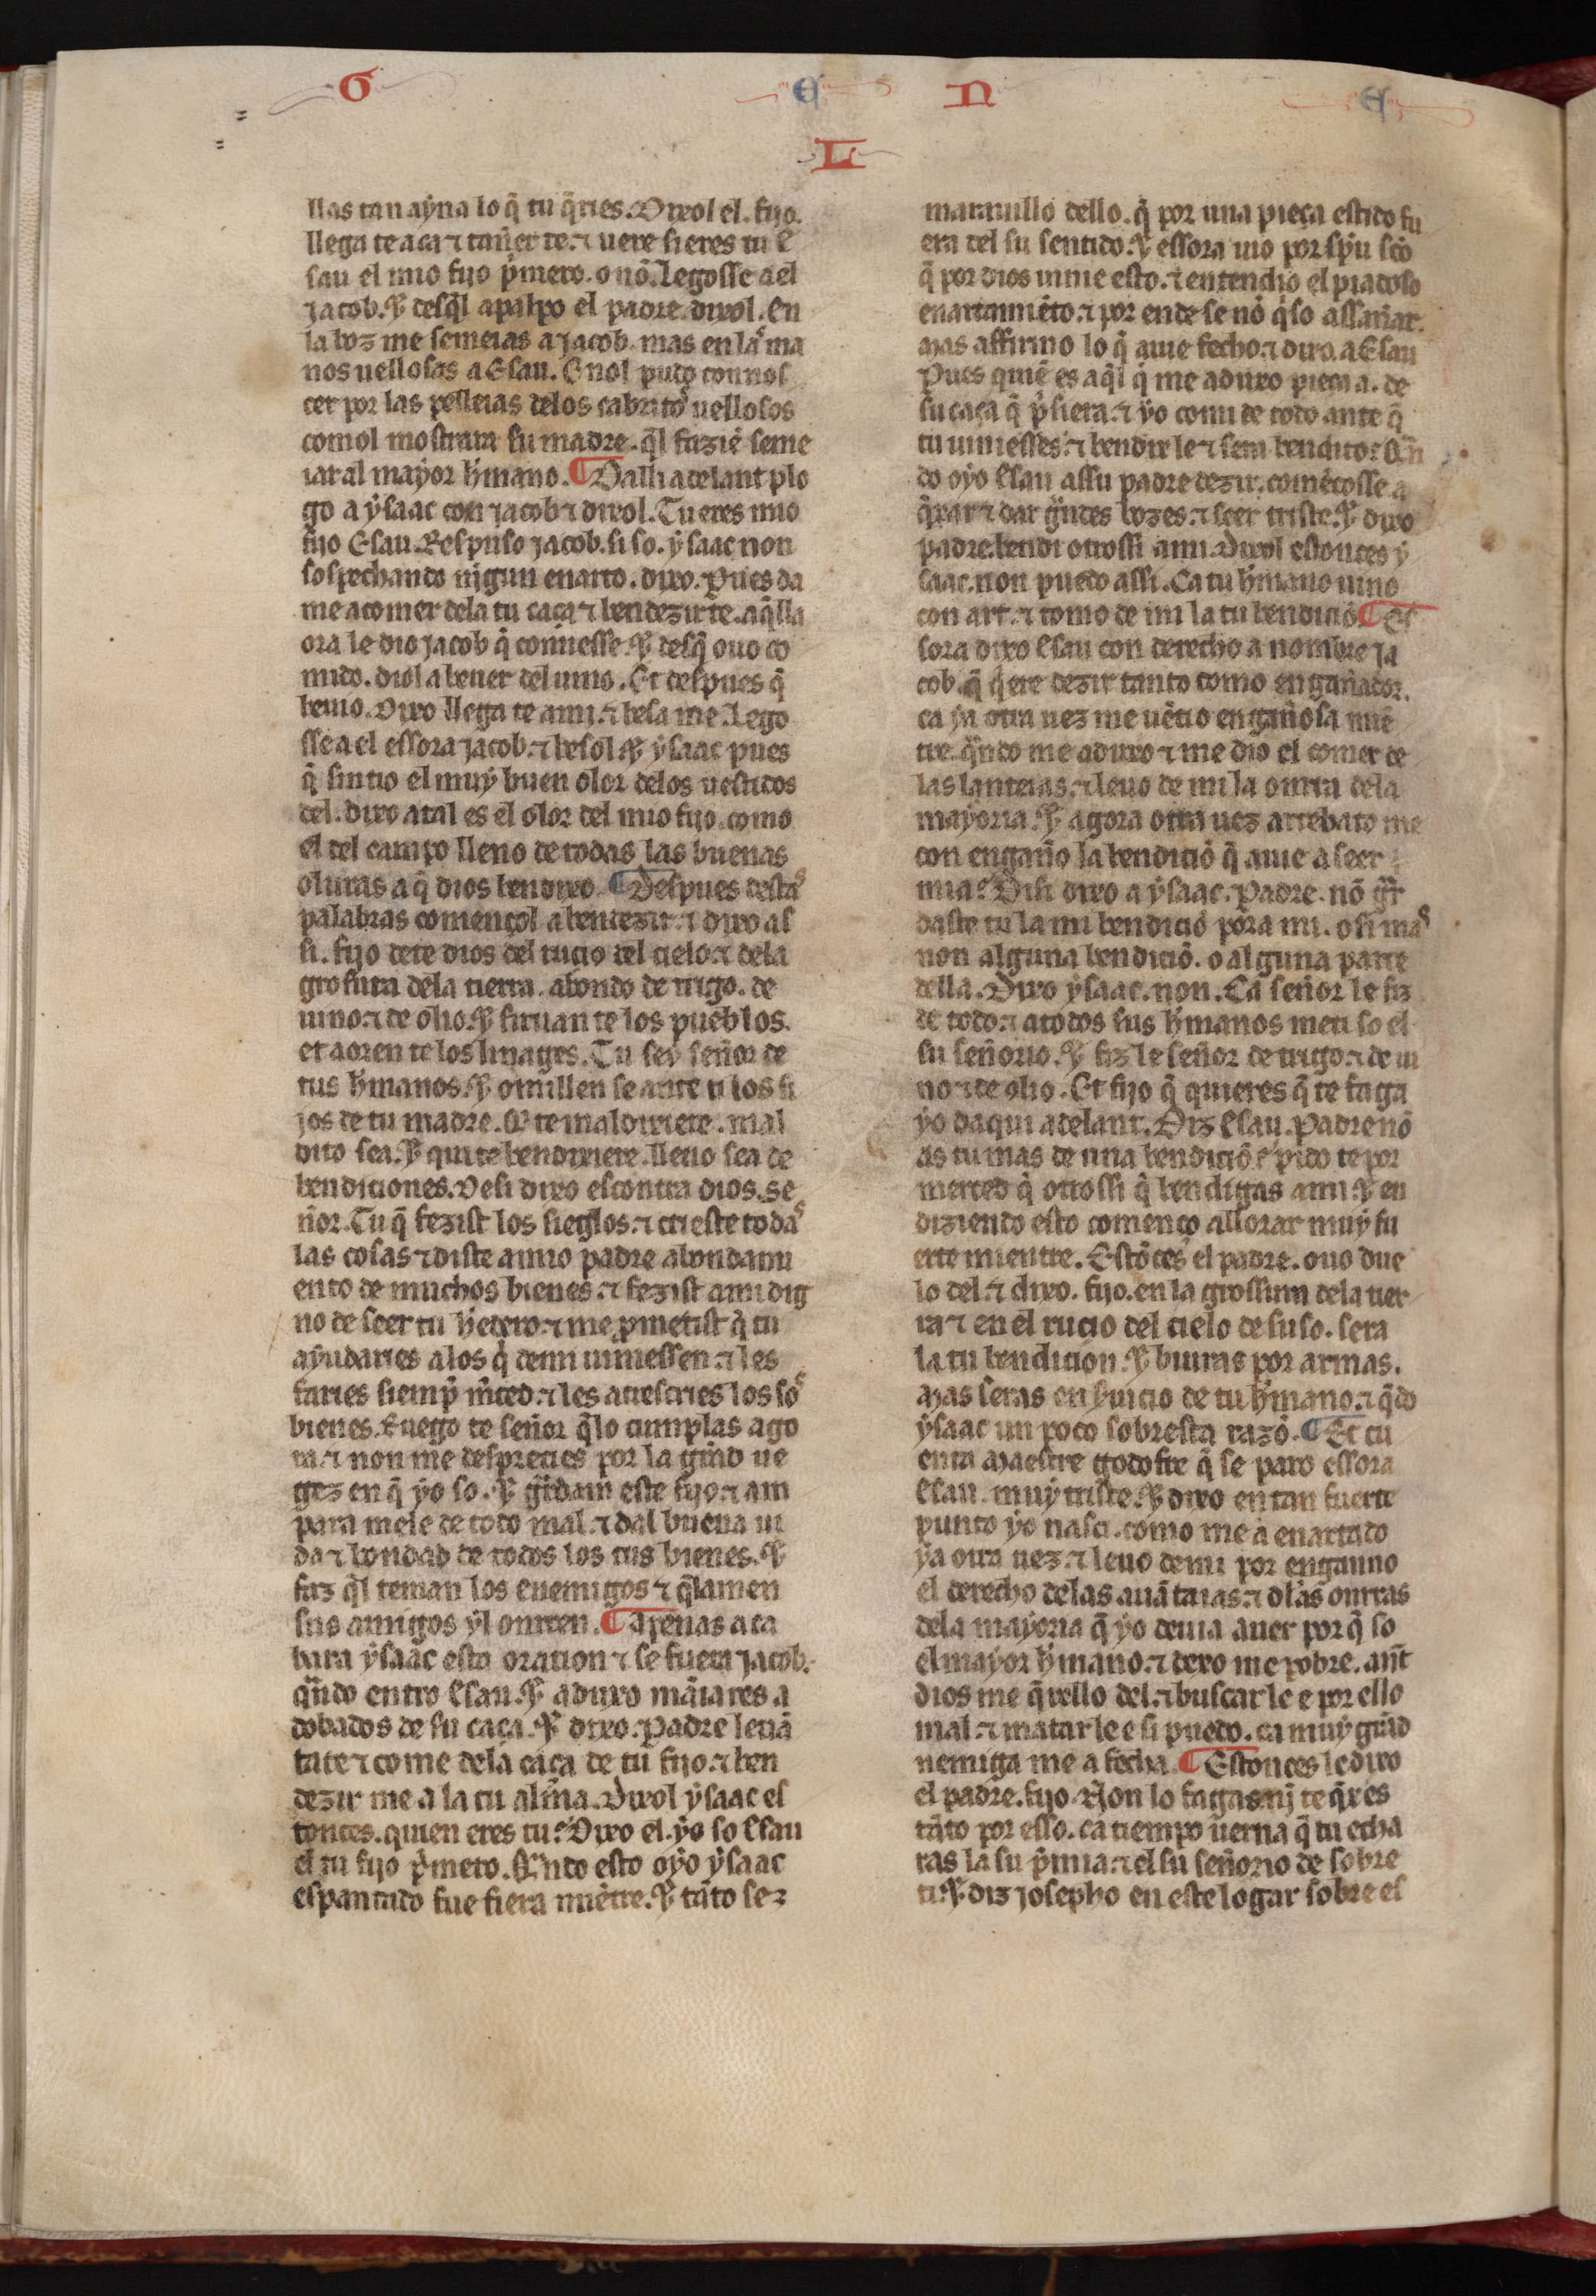 G E N E
L
llas tan ayna lo q̃ tu q̃ries. Dixol el. fijo.
llega te aca ⁊ tañer te. ⁊ uere si eres tu E
sau el mio fijo p̃mero. o nõ. Legosse a el
Jacob. ⁊ desq̃l apalpo el padre. dixol. En
la boz me semeias a Jacob. mas en laˢ ma
nos uellosas a Esau. E nol pudo connos
cer por las pelleias delos cabritoˢ uellosos
comol mostrara su madre. q̃l fazie seme
iar al mayor h̃mano. ¶ Dalli adelant plo
go a ysaac con Jacob ⁊ dixol. Tu eres mio
fijo Esau. Respuso Jacob. si so. ysaac non
sospechando nj̃gun enarto. dixo. Pues da
me a comer dela tu caça ⁊ bendezir te. aq̃lla
ora le dio Jacob q̃ comiesse. ⁊ desq̃ ouo co
mido. diol a beuer del uino. Et despues q̃
beuio. Dixo llega te a mi. ⁊ besa me. Lego
sse a el essora Jacob. ⁊ besol. ⁊ ysaac pues
q̃ sintio el muy buen olor delos uestidos
del. dixo atal es el olor del mio fijo. como
el del campo lleno de todas las buenas
oluras a q̃ dios bendixo. ¶ Despues destaˢ
palabras començol a bendezir. ⁊ dixo as
si. fijo dete dios del rucio del cielo. ⁊ dela
grossura dela tierra. abondo de trigo. de
uino. ⁊ de olio. ⁊ siruan te los pueblos.
et aoren te los linages. Tu sey señor de
tus h̃manos. ⁊ omillen se ante ti los fi
jos de tu madre. Q̃ te maldixiere. mal
dito sea. ⁊ qui te bendixiere. lleno sea de
bendiciones. Desi dixo escontra dios. Se
ñor. Tu q̃ fezist los sieglos. ⁊ crieste todaˢ
las cosas ⁊ diste a mio padre abondami
ento de muchos bienes. ⁊ fezist a mi dig
no de seer tu h̃edero. ⁊ me ꝓmetist q̃ tu
ayudaries a los q̃ demi uiniessen. ⁊ les
faries siemp̃ m̃ced. ⁊ les acrescries los soˢ
bienes. Ruego te señor q̃ lo cumplas ago
ra. ⁊ non me desprecies por la grãd ue
gez en q̃ yo so. ⁊ g̃rdam este fijo. ⁊ am
para mele de todo mal. ⁊ dal buena ui
da ⁊ bondad de todos los tus bienes. ⁊
faz q̃l teman los enemigos ⁊ q̃l amen
sus amigos yl onrren. ¶ Apenas aca
bara ysaac esta oration ⁊ se fuera Jacob.
qñdo entro Esau. ⁊ aduxo mãiares a
dobados de su caça. ⁊ dixo. Padre leuã
tate ⁊ come dela caça de tu fijo. ⁊ ben
dezir me a la tu alma. Dixol ysaac es
tonces. quien eres tu? Dixo el. yo so Esau
el tu fijo p̃mero. Qñdo esto oyo ysaac
espantado fue fiera miẽtre. ⁊ tãto se
marauillo dello. q̃ por una pieça estido fu
era del su sentido. ⁊ essora uio por spũ scõ
q̃ por dios uinie esto. ⁊ entendio el piadoso
enartamiẽto. ⁊ por ende se nõ q̃so assañar.
Mas affirmo lo q̃ auie fecho. ⁊ dixo. a Esau
Pues quiẽ es aq̃l q̃ me aduxo pieça a. de
su caça q̃ p̃siera. ⁊ yo comi de todo ante q̃
tu uiniesses. ⁊ bendixle ⁊ sera bendito? Qñ
do oyo Esau assu padre dezir. comẽçosse a
q̃xar ⁊ dar g̃ndes bozes. ⁊ seer triste. ⁊ dixo
padre. bendi otrossi a mi. Dixol estonces y
saac. non puedo assi. Ca tu h̃mano uino
con art. ⁊ tomo de mi la tu bendiciõ. ¶ Es
sora dixo Esau con derecho a nombre Ja
cob. q̃ q̃ere dezir tanto como engañador.
ca ya otra uez me uẽcio engañosa miẽ
tre. q̃ndo me aduxo ⁊ me dio el comer de
las lanteias. ⁊ leuo de mi la onrra dela
mayoria. ⁊ agora otra uez arrebato me
con engaño la bendiciõ q̃ auie a seer
mia. Desi dixo a ysaac. Padre. nõ g̃r
daste tu la mi bendiciõ pora mi. o si maˢ
non alguna bendiciõ. o alguna parte
della. Dixo ysaac. non. Ca señor le fiz
de todo. ⁊ a todos sus h̃manos meti so el
su señorio. ⁊ fiz le señor de trigo. ⁊ de ui
no ⁊ de olio. Et fijo q̃ quieres q̃ te faga
yo daqui adelant. Diz Esau. Padre nõ
as tu mas de una bendiciõ? pido te por
merced q̃ otrossi q̃ bendigas a mi. ⁊ en
diziendo esto començo allorar muy fu
erte mientre. Estõces el padre. ouo due
lo del. ⁊ dixo. fijo. en la grossura dela tier
ra ⁊ en el rucio del cielo de suso. sera
la tu bendicion. ⁊ biuras por armas.
Mas seras en s̃uicio de tu h̃mano. ⁊ q̃do
ysaac un poco sobresta razõ. ¶ Et cu
enta Maestre godofre q̃ se paro essora
Esau. muy triste. ⁊ dixo en tan fuerte
punto yo nasci. como me a enartado
ya otra uez. ⁊ leuo demi por enganno
el derecho delas auãtaias. ⁊ dlas onrras
dela mayoria q̃ yo deuia auer por q̃ so
el mayor h̃mano. ⁊ dexo me pobre. ant̃
dios me q̃rello del. ⁊ buscarle e por ello
mal. ⁊ matarle e si puedo. ca muy grãd
nemiga me a fecha. ¶ Estonces le dixo
el padre. fijo. Non lo fagas nj̃ te q̃xes
tãto por esso. ca tiempo uerna q̃ tu echa
ras la su p̃mia. ⁊ el su señorio de sobre
ti. ⁊ diz Josepho en este logar sobre es